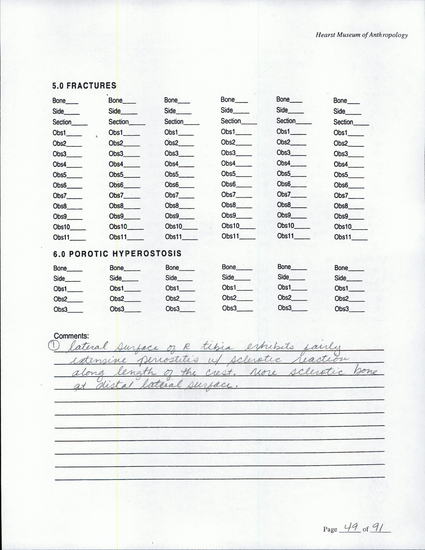 Hearst Museum of Anthropology
5.0 FRACTURES
Bone____ Bone____ Bone____ Bone____ Bone____ Bone____
Side____ Side____ Side____ Side____ Side____ Side____
Section____ Section____ Section____ Section____ Section____ Section____
Obs1____ Obs1____ Obs1____ Obs1____ Obs1____ Obs1____
Obs2____ Obs2____ Obs2____ Obs2____ Obs2____ Obs2____
Obs3____ Obs3____ Obs3____ Obs3____ Obs3____ Obs3____
Obs4____ Obs4____ Obs4____ Obs4____ Obs4____ Obs4____
Obs5____ Obs5____ Obs5____ Obs5____ Obs5____ Obs5____
Obs6____ Obs6____ Obs6____ Obs6____ Obs6____ Obs6____
Obs7____ Obs7____ Obs7____ Obs7____ Obs7____ Obs7____
Obs8____ Obs8____ Obs8____ Obs8____ Obs8____ Obs8____
Obs9____ Obs9____ Obs9____ Obs9____ Obs9____ Obs9____
Obs10____ Obs10____ Obs10____ Obs10____ Obs10____ Obs10____
Obs11____ Obs11____ Obs11____ Obs11____ Obs11____ Obs11____
6.0 POROTIC HYPEROSTOSIS
Bone____ Bone____ Bone____ Bone____ Bone____ Bone____
Side____ Side____ Side____ Side____ Side____ Side____
Obs1____ Obs1____ Obs1____ Obs1____ Obs1____ Obs1____
Obs2____ Obs2____ Obs2____ Obs2____ Obs2____ Obs2____
Obs3____ Obs3____ Obs3____ Obs3____ Obs3____ Obs3____
Comments:
① lateral surface of R tibia exhibits fairly
extensive periostitis w/ sclerotic reaction
along length of the crest. More sclerotic bone
at distal lateral surface.
Page 49 of 91